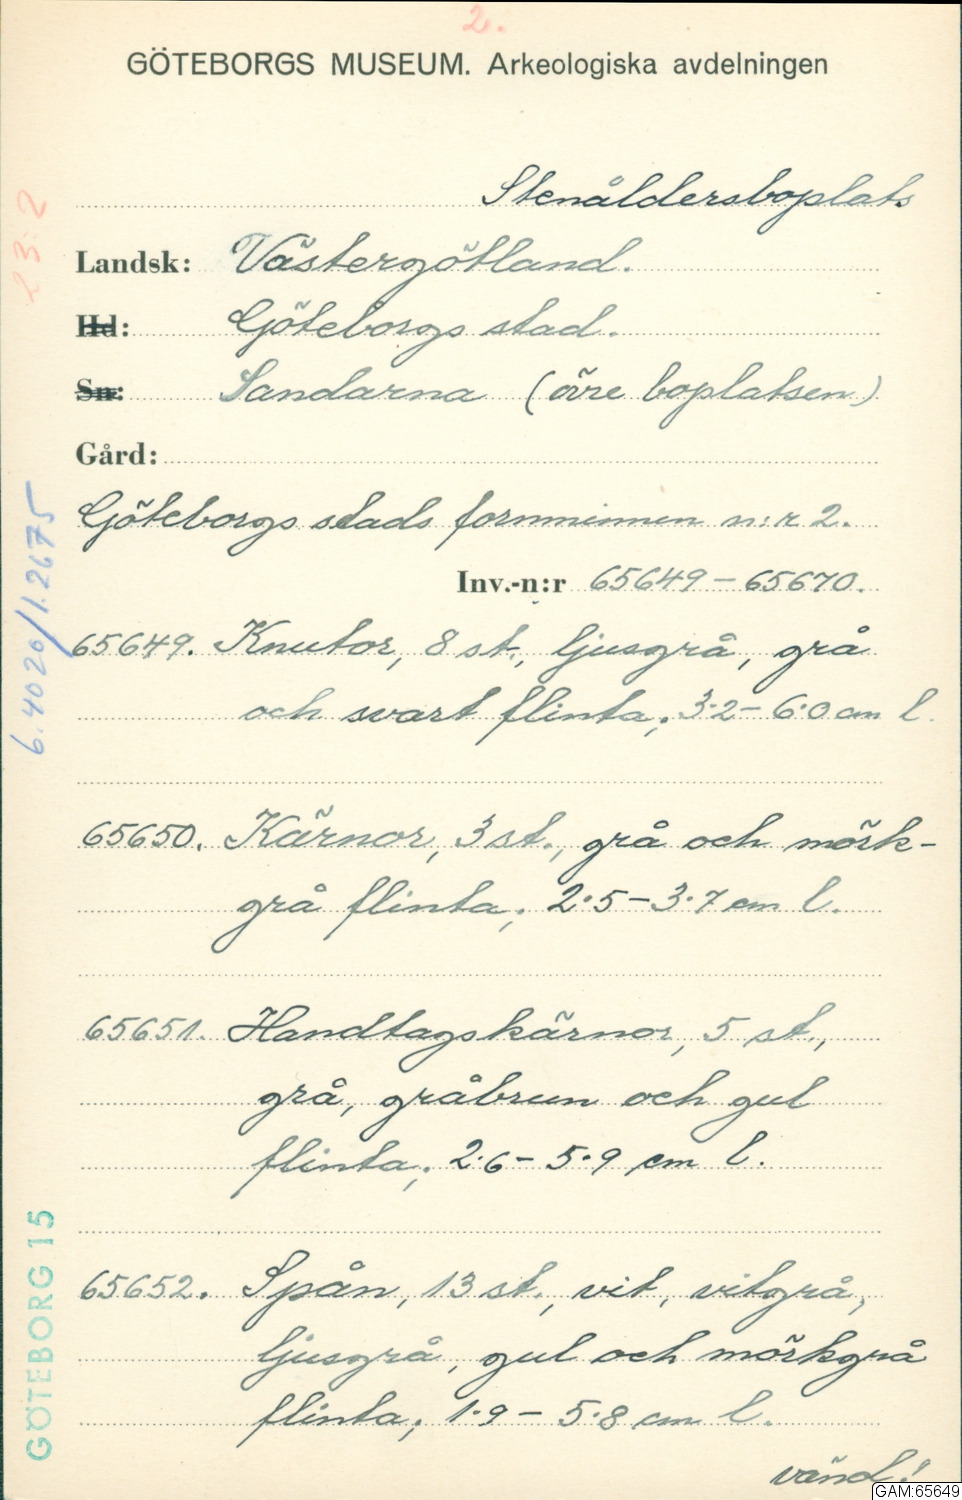 2.
GÖTEBORGS MUSEUM. Arkeologiska avdelningen
Stenåldersboplats
Landsk: Västergötland.
Hd: Göteborgs stad.
Sn: Sandarna (övre boplatsen)
Gård:
Göteborgs stads fornminnen n:r 2.
Inv.-n:r 65649-65670.
65649. Knutor, 8 st., ljusgrå, grå
och svart flinta; 3·2-6·0 cm l.
65650. Kärnor, 3 st., grå och mörk-
grå flinta; 2·5-3·7 cm l.
65651. Handtagskärnor, 5 st.,
grå, gråbrun och gul
flinta; 2·6-5·9 cm l.
65652. Spån, 13 st., vit, vitgrå,
ljusgrå, gul och mörkgrå
flinta; 1·9-5·8 cm l.
vänd!
23:2
6.4020/1.2675
GÖTEBORG 15
GAM:65649